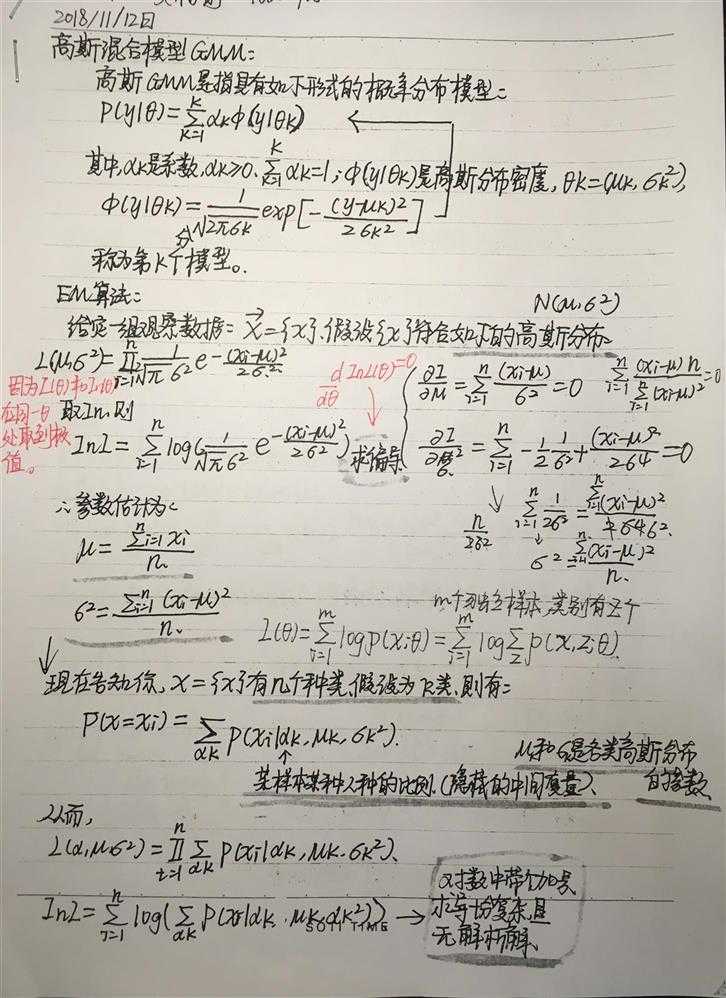 2018/11/12日
高斯混合模型GMM:
高斯GMM是指具有如下形式的概率分布模型:
P(y|θ)=∑_{k=1}^{K} αkΦ(y|θk)
其中,αk是系数,αk≥0,∑_{k=1}^{K} αk=1;Φ(y|θk)是高斯分布密度,θk=(μk,σk²),
Φ(y|θk)=1/(√2π σk) exp[-(y-μk)²/(2σk²)]
称为第K个模型。
EM算法:
N(μ,σ²)
给定一组观察数据: X={x},假设{x}符合如下的高斯分布:
L(μ,σ²)=∏_{i=1}^{n} 1/(√π σ²) e^{-(xi-μ)²/(2σ²)}
因为L(θ)和ln(θ)
在同一θ
处取到极
值。
取ln,则
d/dθ lnL(θ)=0
lnL=∑_{i=1}^{n} log(1/(√π σ²) e^{-(xi-μ)²/(2σ²)})
求偏导
∂l/∂μ=∑_{i=1}^{n} (xi-μ)/σ²=0
∑_{i=1}^{n} (xi-μ)n/∑_{i=1}^{n}(xi-μ)²=0
∂l/∂σ²=∑_{i=1}^{n} -1/2 1/σ²+(xi-μ)²/(2σ4)=0
n/2σ²
∑_{i=1}^{n} 1/2σ²=
σ²=∑(xi-μ)²/n
∴参数估计为:
μ=∑_{i=1}^{n} xi/n
σ²=∑_{i=1}^{n}(xi-μ)²/n
m个独立样本,类别有Z个
L(θ)=∑_{i=1}^{m} log p(x;θ)=∑_{i=1}^{m} log∑_{z} p(x,z;θ)
现在告知你,X={x}有几个种类,假设为K类,则有:
P(x=xi)=∑_{αk} P(xi|αk,μk,σk²).
μ和σ是各类高斯分布
的参数
某样本某种人种的比例.(隐藏的中间变量)、
从而,
L(α,μ,σ²)=∏_{i=1}^{n} ∑_{αk} P(xi|αk,μk,σk²)、
lnL=∑_{i=1}^{n} log(∑_{αk} P(xi|αk,μk,αk²))→
对数中带个加号,
求导怕复杂,且
无解析解、